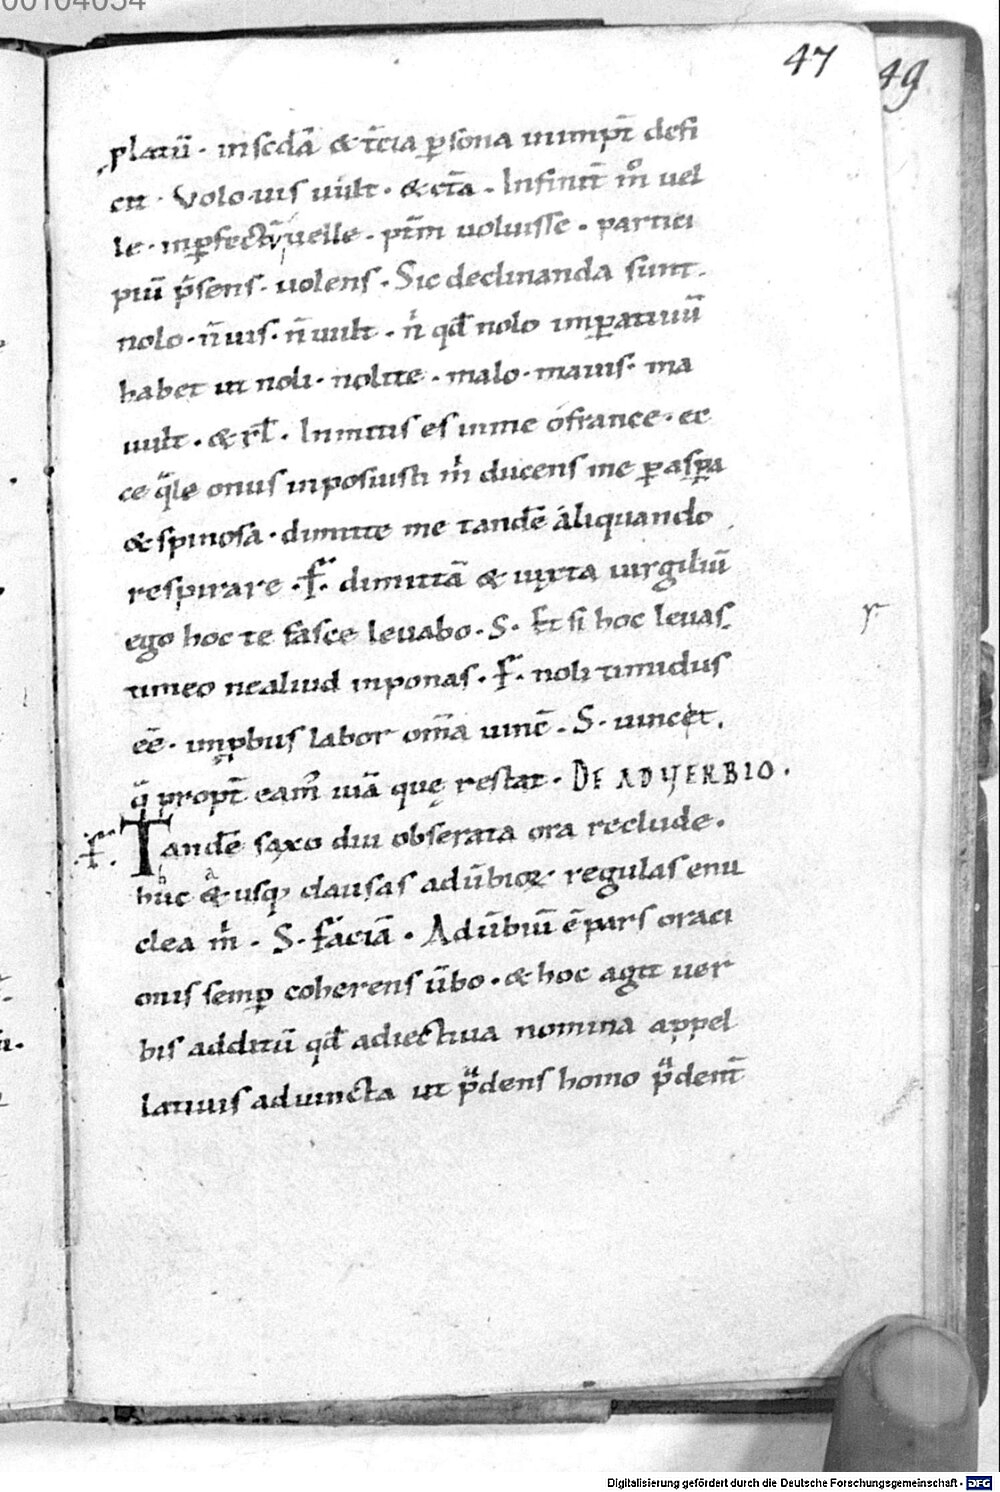 00104054
47
49
platū · in scdā & t̄cia ꝑsona num̄ꝑt̄ defi
cit · Volo · uis uult · & ct̄a · Infinit̄ m̊ uel
le · inꝑfectū uelle · pt̄m uoluisse · partici
piū p̄sens · uolens · Sic declinanda sunt ·
nolo · n̄ uis · n̄ uult · n̍ qđ nolo imꝑatiuū
habet ut noli · nolite · malo · mauis · ma
uult · & rł · Inmitis es in me o france · ec
ce q̄le onus inposuisti m̍ ducens me ꝑ asꝑa
& spinosa · dimitte me tandē aliquando
respirare · F · dimittā & iuxta uirgiliū
ego hoc te fasce leuabo · S · Et si hoc leuas ·
timeo ne aliud inponas · F · noli timidus
eē · imꝓbus labor om̄a uinc̄ · S · uincet ·
q̄ propt̄ eam̍ uiā quę restat · DE ADVERBIO ·
F · Tandē saxo diu obserata ora reclude ·
huc & usq; clausas adūbioꝝ regulas enu
clea m̍ · S · faciā · Adūbiū ē pars oraci
onis semꝑ coherens ūbo · & hoc agit uer
bis additū qđ adiectiua nomina appel
latiuis adiuncta ut pͧdens homo pͧdent̄
Digitalisierung gefördert durch die Deutsche Forschungsgemeinschaft - DFG